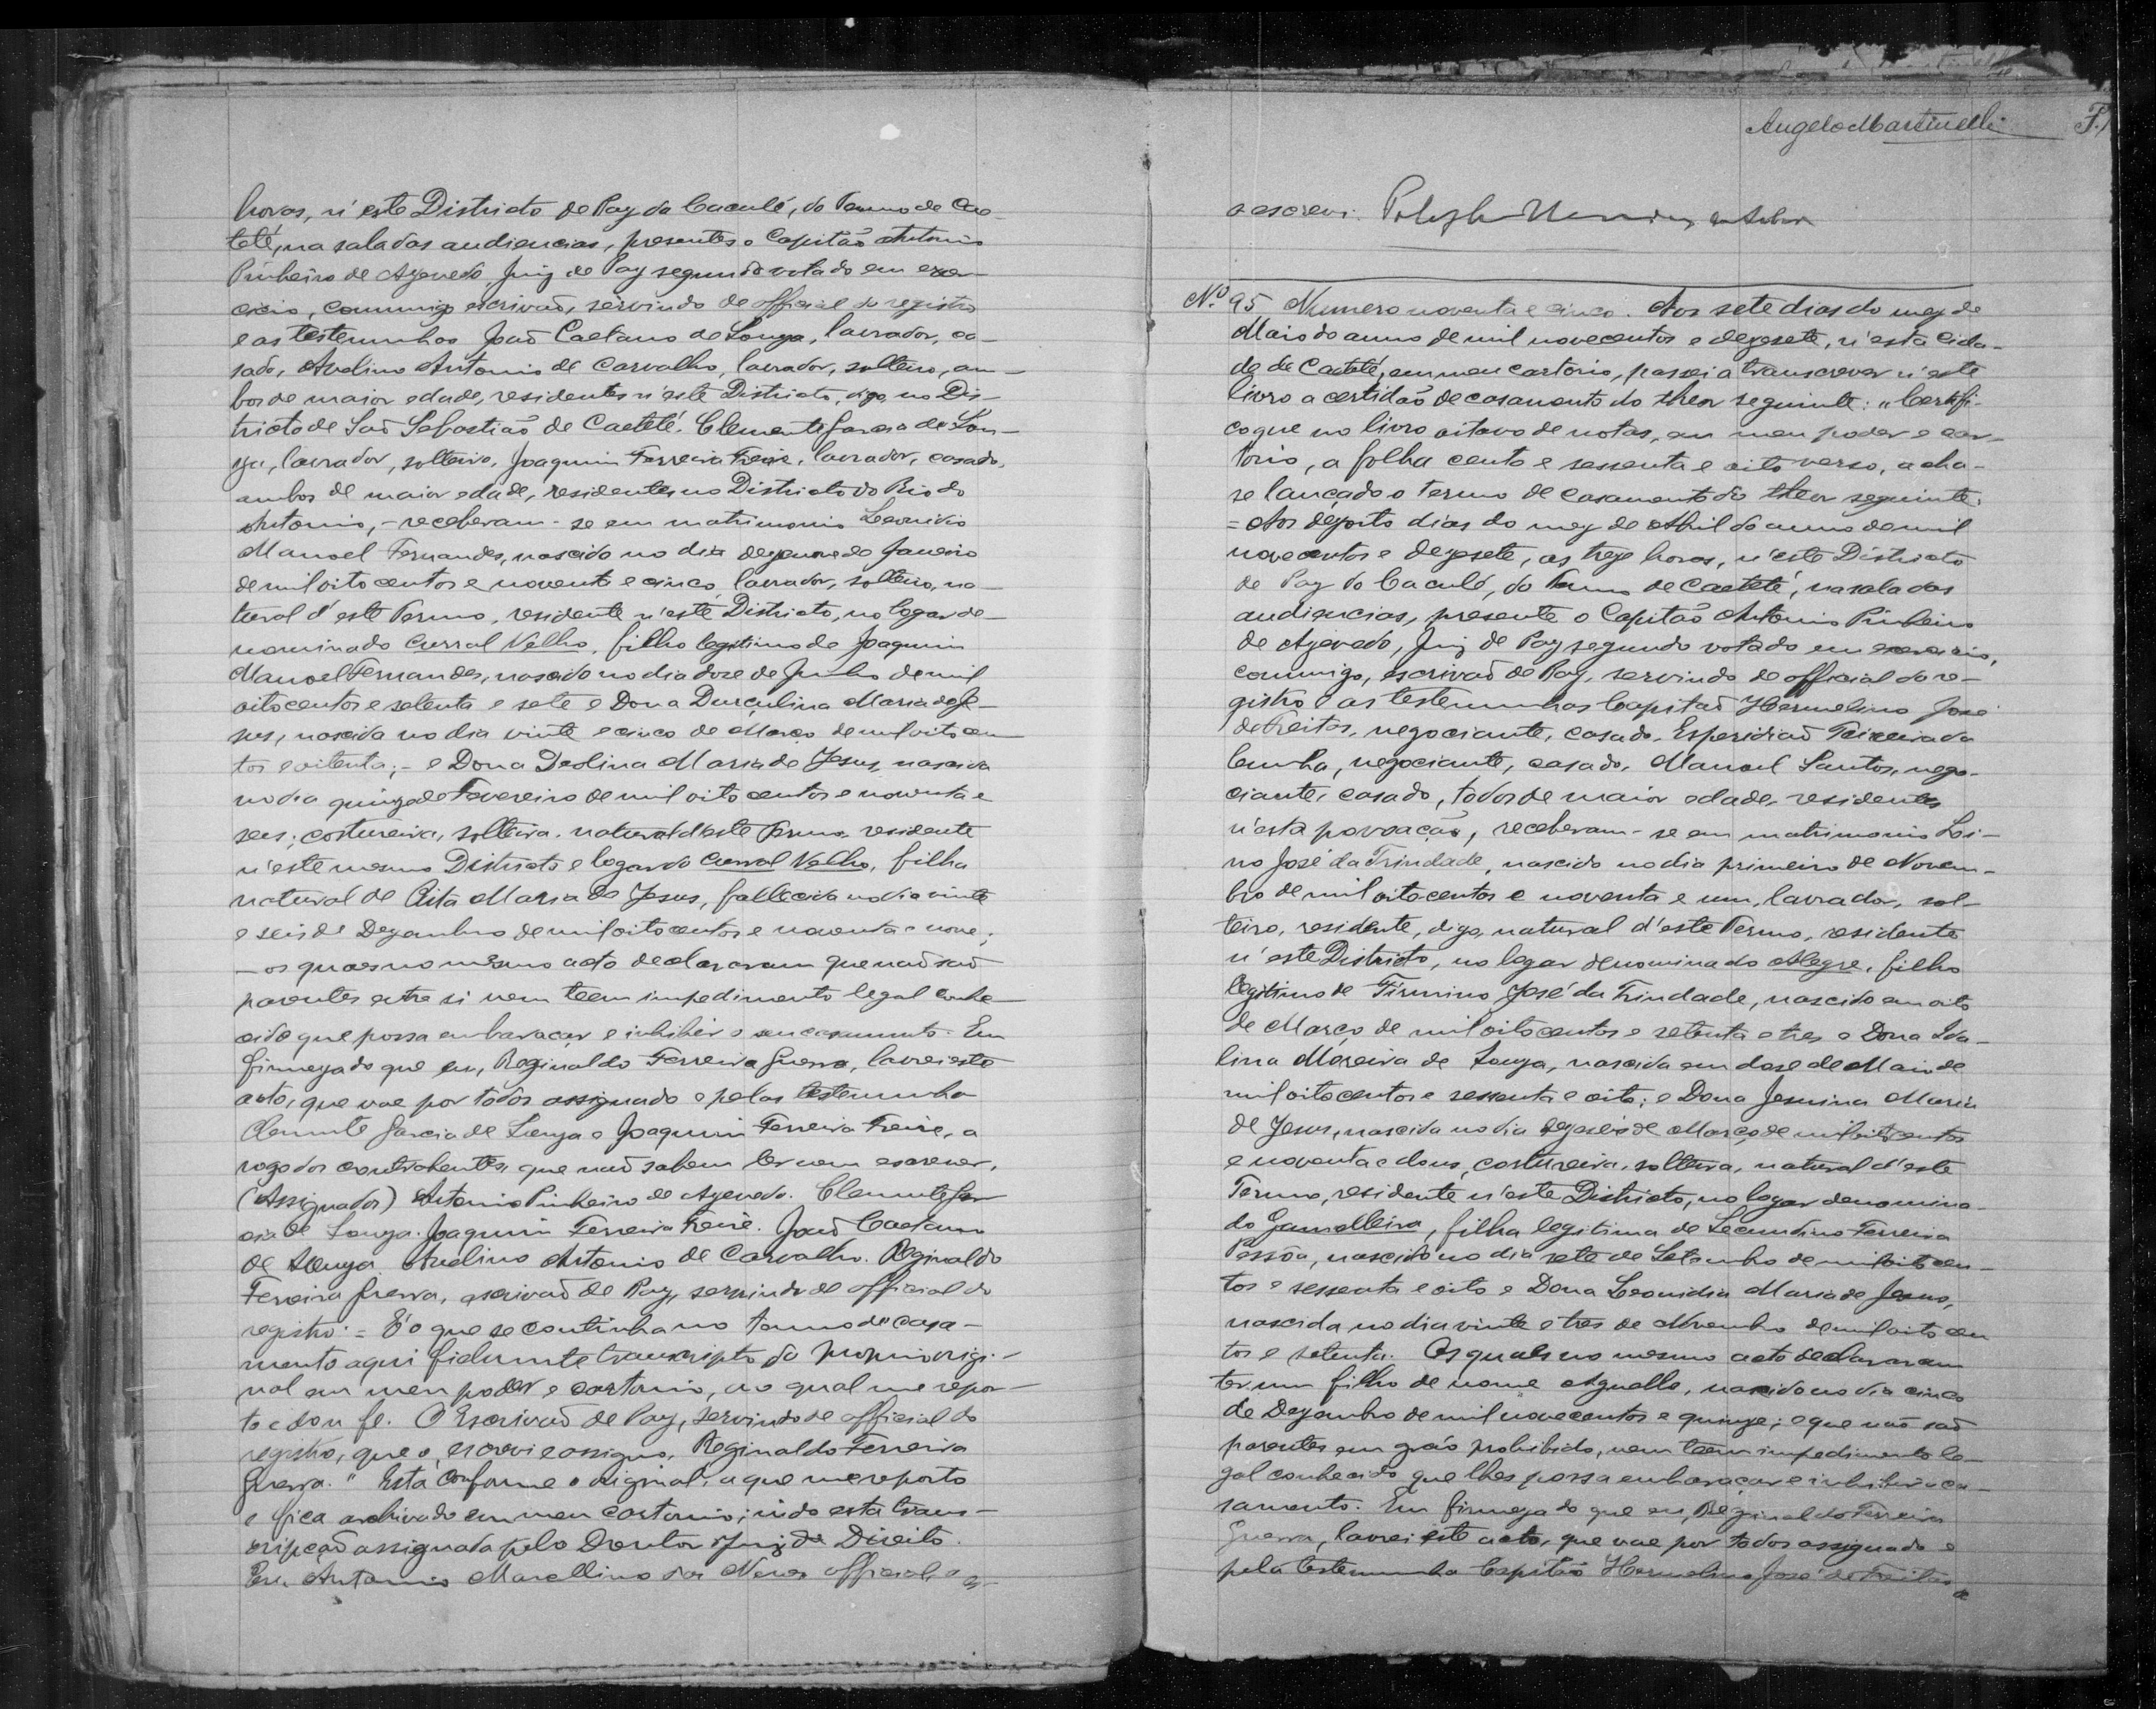 horas, n'este Districto de Paz do Caculé, do Termo de Cae-
teté, na sala das audiencias, presentes o Capitão Antonio
Pinheiro de Azevedo, Juiz de Paz segundo votado em exer-
cicio, commigo escrivaõ, servindo de official do registro
e as testemunhas Joaõ Caetano de Souza, lavrador, ca-
sado, Avelino Antonio de Carvalho, lavrador, solteiro, am-
bos de maior edade, residentes n'este Districto, digo, no Dis-
tricto de Saõ Sebastiaõ de Caeteté. Clemente Garcia de Sou-
za, lavrador, solteiro, Joaquim Ferreira Freire, lavrador, casado,
ambos de maior edade, residentes no Districto do Rio do
Antonio, - receberam-se em matrimonio Leonidio
Manoel Fernandes, nascido no dia dezenove de Janeiro
de mil oito centos e noventa e cinco, lavrador, solteiro, na-
tural d'este Termo, residente n'este Districto, no logar de-
nominado Curral Velho, filho legitimo de Joaquim
Manoel Fernandes, nascido no dia dose de Junho de mil
oito centos e setenta e sete e Dona Durçulina Maria de Je-
sus, nascida no dia vinte e cinco de Março de mil oito cen-
tos e oitenta; - e Dona Deolina Maria de Jesus, nascida
no dia quinze de Fevereiro de mil oito centos e noventa e
seis; costureira, solteira, natural d'este Termo, residente
n'este mesmo Districto e logar do Curral Velho, filha
natural de Rita Maria de Jesus, fallecida no dia vinte
e seis de Dezembro de mil oito centos e noventa e nove;
- os quaes no mesmo acto declararam que naõ saõ
parentes entre si nem teem impedimento legal conhe-
cido que possa embaraçar e inhibir o seu casamento. Em
firmeza do que eu, Reginaldo Ferreira Guerra, lavrei este
acto, que vae por todos assignado e pelas testemunha
Clemente Garcia de Souza e Joaquim Ferreira Freire, a
rogo dos contrahentes que naõ sabem ler nem escrever.
(Assignados) Antonio Pinheiro de Azevedo. Clemente Gar
cia de Souza. Joaquim Ferreira Freire. Joaõ Caetano
de Souza. Avelino Antonio de Carvalho. Reginaldo
Ferreira Guerra, escrivaõ de Paz, servindo de official do
registro. = E' o que se continha no termo de casa-
mento aqui fielmente transcripto do proprio origi-
nal em meu poder e cartorio, ao qual me repor-
to e dou fé. O Escrivaõ de Paz, servindo de official do
registro, que o escrevi e assigno, Reginaldo Ferreira
Guerra." Está conforme o original, a que me reporto
e fica archivado em meu cartorio; indo esta trans-
cripçaõ assignada pelo Doutor Juiz de Direito.
Eu, Antonio Marcellino das Neves official, a

Angelo Martinelli F.
o escrevi.
Nº 95 Numero noventa e cinco. Aos sete dias do mez de
Maio do anno de mil novecentos e dezesete, n'esta Cida-
de de Caeteté, em meu cartorio, passei a transcrever n'este
livro a certidão de casamento do theor seguinte: "Certifi-
co que no livro oitavo de notas, em meu poder e car-
torio, a folha cento e sessenta e oito verso, acha-
se lançado o termo de casamento do theor seguinte:
= Aos dezoito dias do mez de Abril do anno de mil
novecentos e dezesete, as treze horas, n'este Districto
de Paz do Caculé, do Termo de Caeteté, na sala das
audiencias, presente o Capitão Antonio Pinheiro
de Azevedo, Juiz de Paz segundo votado em exercicio,
commigo, escrivaõ de Paz, servindo de official do re-
gistro e as testemunhas Capitaõ Hermelino José
de Freitas, negociante, casado, Esperidiaõ Teixeira da
Cunha, negociante, casado, Manoel Santos, nego-
ciante, casado, todos de maior edade, residentes
n'esta povoação, receberam-se em matrimonio
José da Trindade, nascido no dia primeiro de Novem-
bro de mil oito centos e noventa e um, lavrador, sol-
teiro, residente, digo, natural d'este Termo, residente
n'este Districto, no logar denominado Alegre, filho
legitimo de Firmino José da Trindade, nascido em oito
de Março de mil oito centos e setenta e tres e Dona Ida-
lina Moreira de Souza, nascida em dose de Maio de
mil oito centos e sessenta e oito; e Dona Jesuina Maria
de Jesus, nascida no dia dezeseis de Março de mil oito centos
e noventa e dous, costureira, solteira, natural d'este
Termo, residente n'este Districto, no logar denomina-
do Gamelleira, filha legitima de Secundino Ferreira
Pessôa, nascido no dia sete de Setembro de mil oito cen-
tos e sessenta e oito e Dona Leonidia Maria de Jesus,
nascida no dia vinte e tres de Novembro de mil oito cen
tos e setenta. Os quaes no mesmo acto declararam
ter um filho de nome Agnello, nascido no dia cinco
de Dezembro de mil novecentos e quinze; e que não saõ
parentes em gráo prohibido, nem teem impedimento le-
gal conhecido que lhes possa embaraçar e inhibir o ca-
samento. Em firmeza do que eu, Reginaldo Ferreira
Guerra, lavrei este acto, que vae por todos assignado e
pela testemunha Capitão Hermelino José de Freitas a